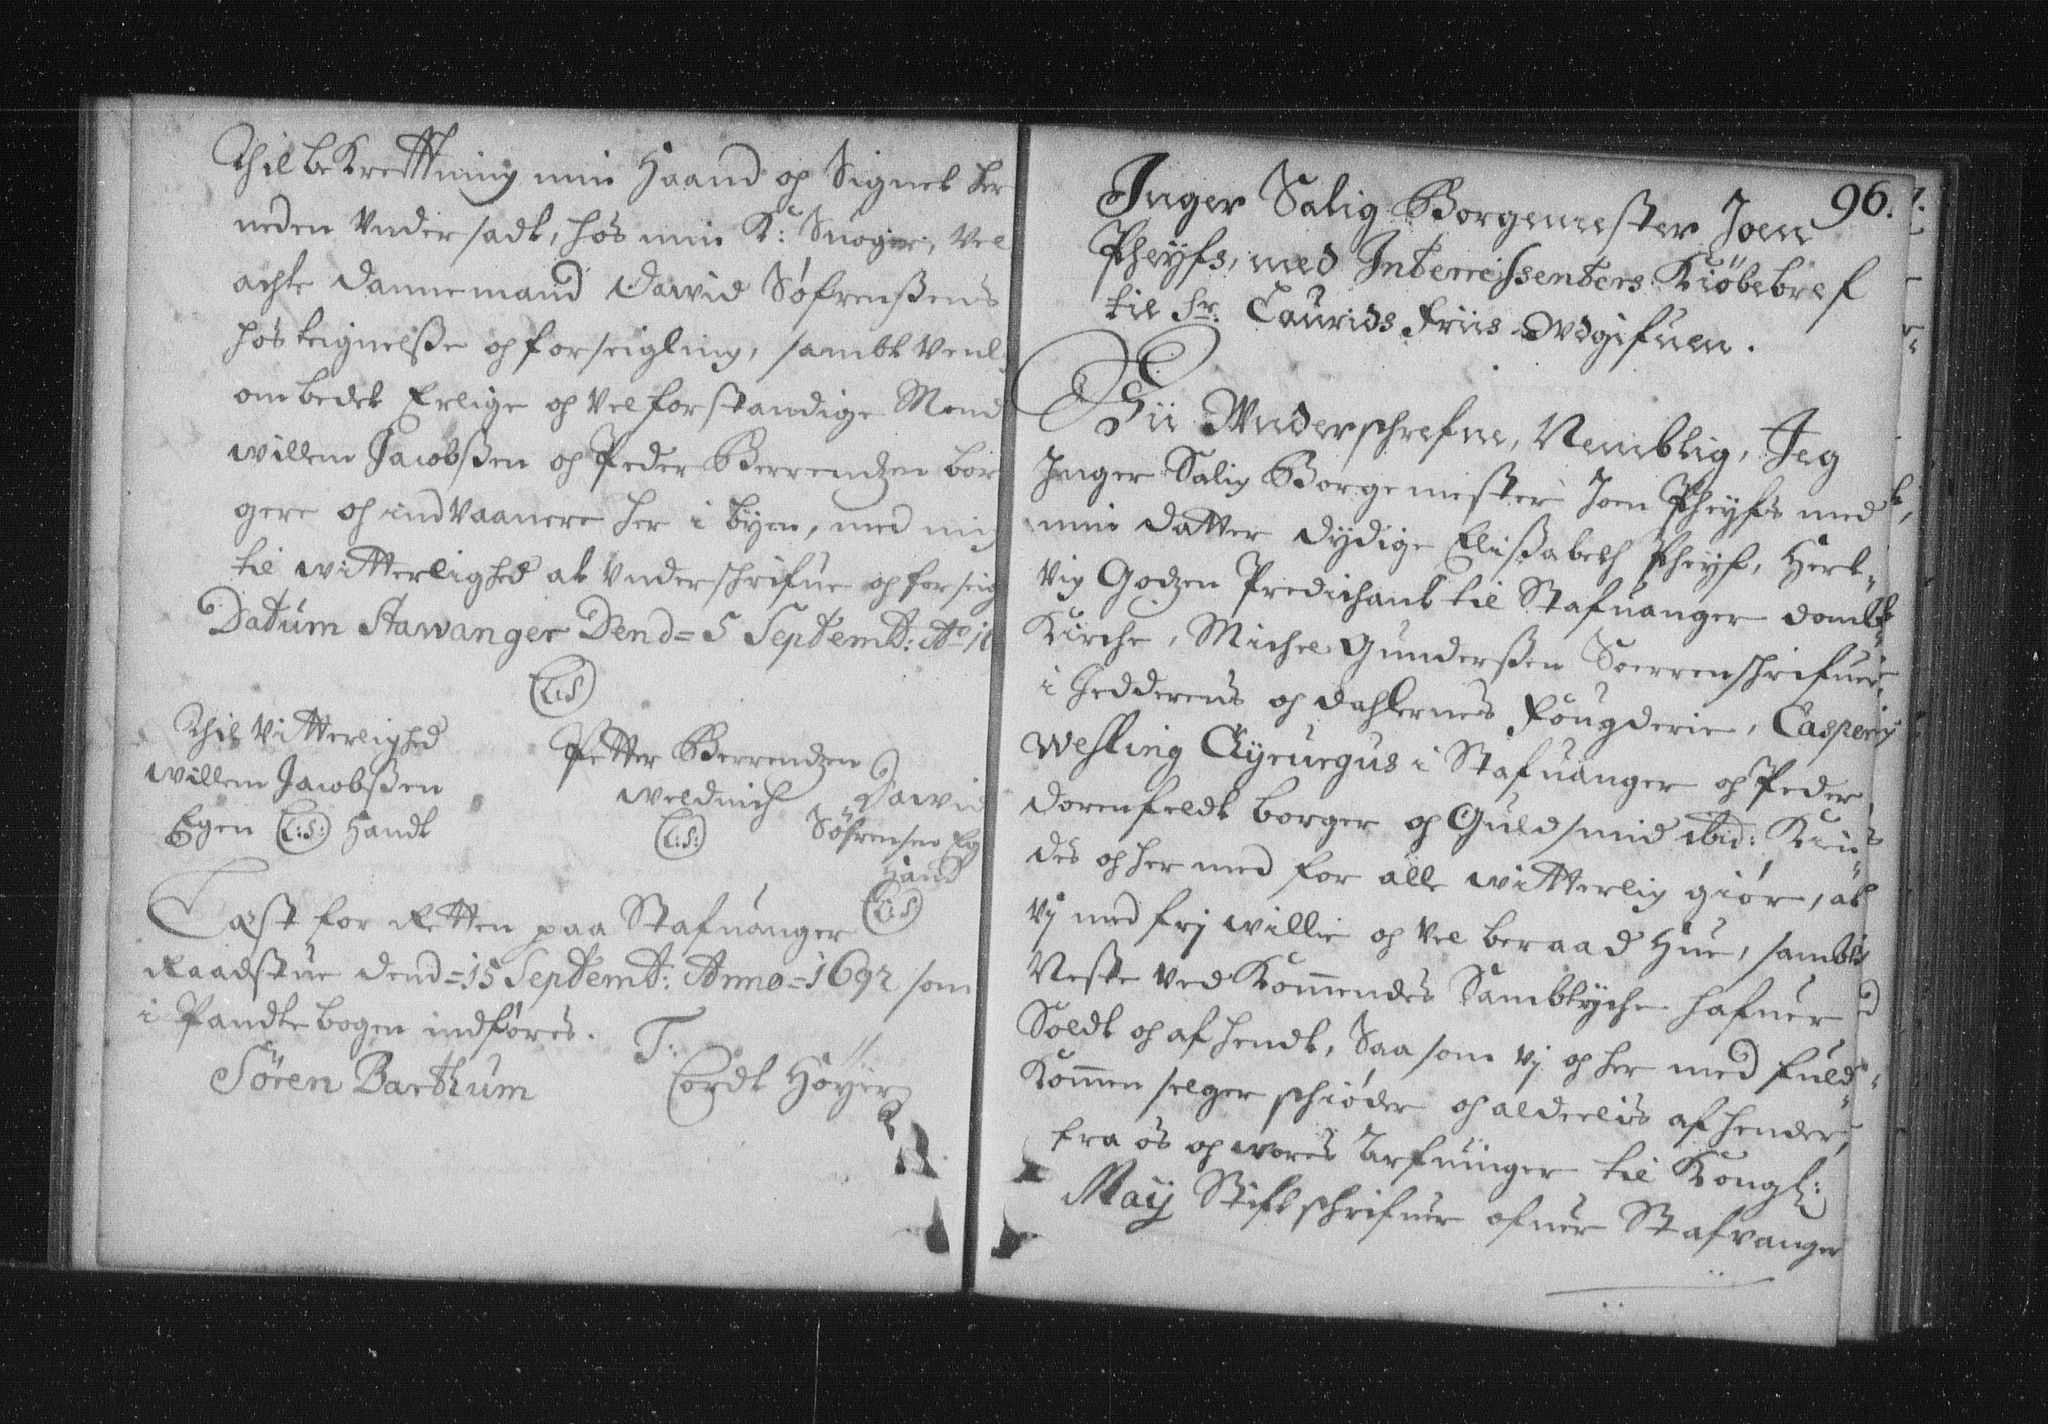 Thil bekrefftning min Haand og Signet her
neden Vndersadt, hos min K: Suoger, Vel
achte Dannemand Dawid Söfrenßens
hos teignelße og forseigling, sambt Venl:
ombedet Erlige og Velforstandige Mend
willem Jacobßen og Peder Berrendzen bor
gere og indvaanere her i byen, med mig
til witterlighed at Vnderschrifue og forseig
Datum Stawanger Dend = 5 Septemb: Ao 16
L:S
Thil Vitterlighed
willem Jacobßen
Egen L:S: Handt
Petter Berrendzen
L:S:
Dawid
Söfrensen Eg
Hand
L:S
Læst for Retten paa Stafuanger
Raadstue Dend = 15 Septemb: Anno = 1692 som
i Pandtebogen indföres. T:
Sören Barthum Cordt Höyer
96.
Inger Salig Borgemester Joen
Pheyfs, med Interressenters Kiöbebref
til Hr. Laurids Friis Wdgifuen.
Wii Wnderschrefne, Nemblig, Jeg
Inger Salig Borgemester Joen Pheyfs med
min Datter dydige Elißabeth Pheyf, Hert-
vig Godzen Predichant til Stafuanger Domb
Kirche, Michel Gunderßen Soerrenschrifuer
i Jedderens og Dahlernes Fougderie, Casper
Wesling Chyrurgus i Stafuanger og Peder
Dorenfeldt borger og Guldsmid ibid: Kien-
des og her med for alle witterlig giör, at
vj med frj willie og vel beraad Hue, sambt
Neste Ved Kommendes Sambtyche hafuer
Soldt og afhendt, Saa som vj og her med fuld-
Kommen selger schiöder og aldeelis afhender,
fra os og wores Arfuinger til Kongl:
Maij Stiftschrifuer ofuer Stafvanger